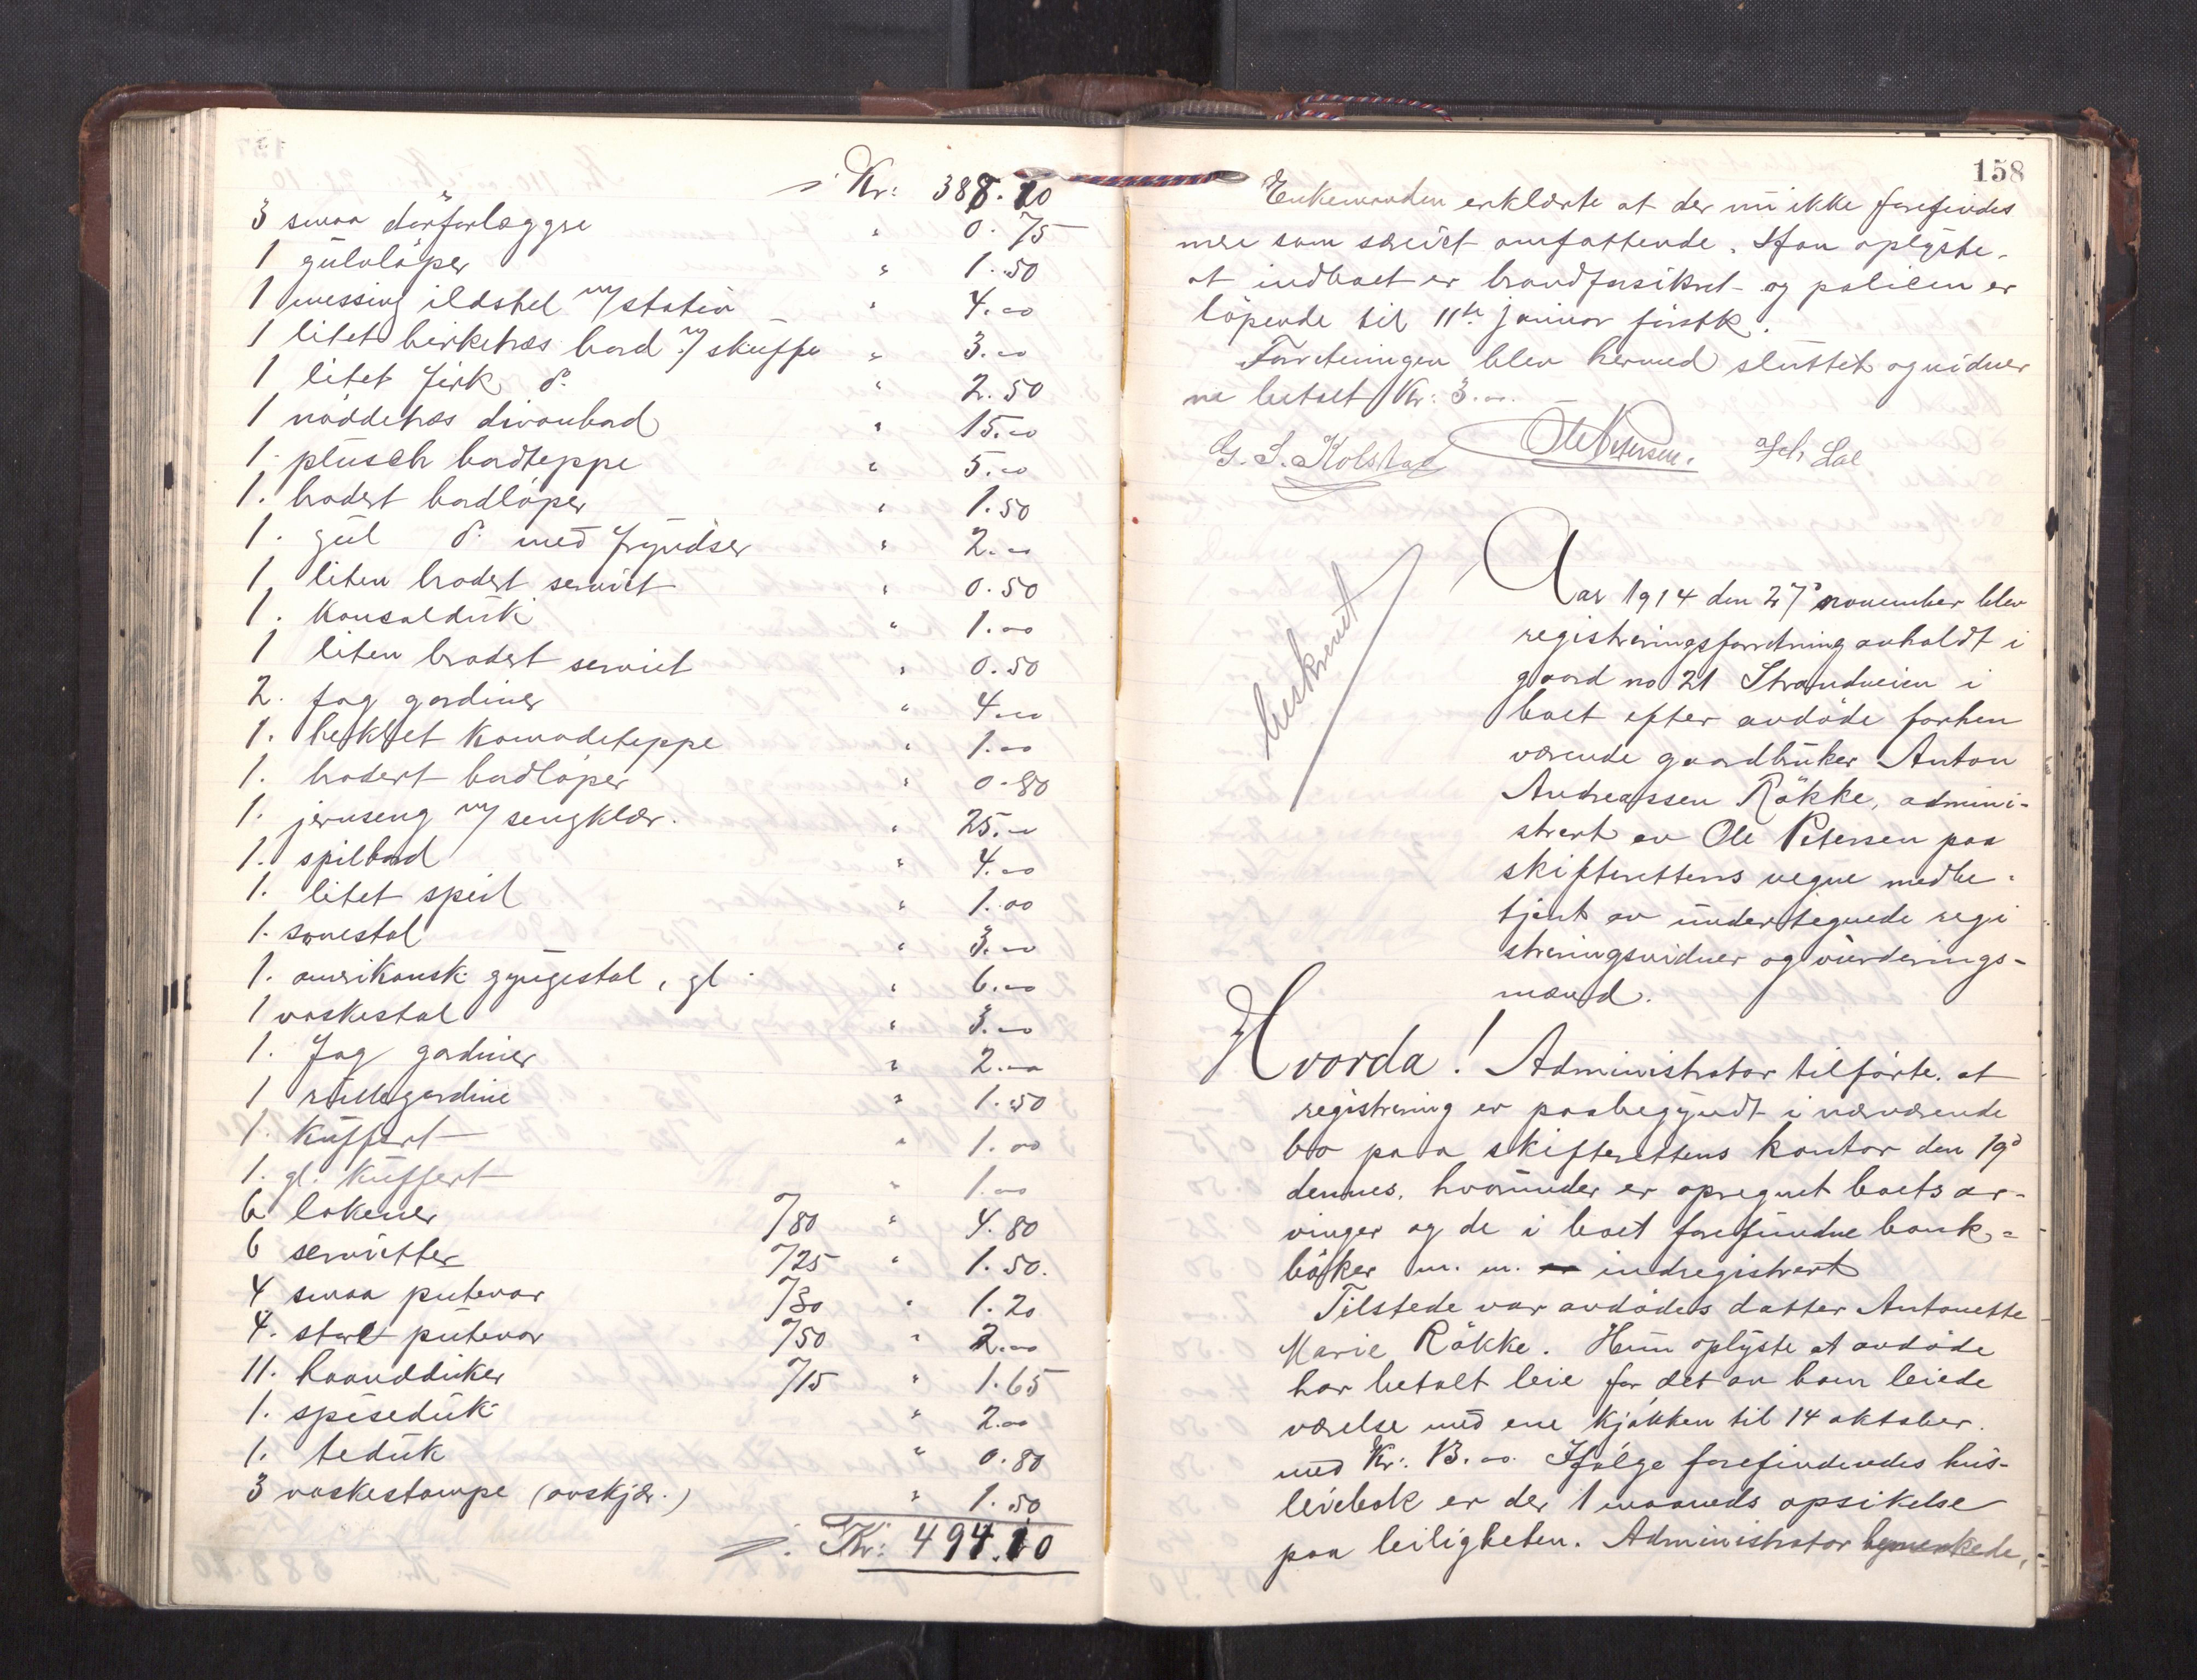 Kr: 388.10
3 smaa dørforlæggre " 0.75
1 gulvløper " 1.50
1 messing ildstel m/stativ " 4.00
1 litet birketræs bord m/ skuffe " 3.00
1 litet firk. d. " 2.50
1 nøddetræs divanbord " 15.00
1. plüsch bordteppe " 5.00
1. brodert bordløper " 1.50
1. gul d. med fryndser " 2.00
1 liten brodert serviet " 0.50
1. Konsoldük " 1.00
1 liten brodert serviet " 0.50
2. fag gardiner " 4.00
1. heklet Komodeteppe " 1.00
1. brodert bordløper " 0.80
1. jernseng m/ sengklær. " 25.00
1. spilbord " 4.00
1. litet speil " 1.00
1. sovestol " 3.00
1. amerikansk gyngestol, gl. " 6.00
1 vaskestol " 3.00
1. fag gardiner " 2.00
1 rullegardine " 1.50
1. Kuffert " 1.00
1. gl. Kuffert " 1.00
6 lakener /80 " 4.80
6 servietter /25 " 1.50.
4 smaa putevar /30 " 1.20
4. store putevar /50 " 2.00
11. haandduker /15 " 1.65
1. spisedük " 2.00
1. tedük " 0.80
3 vaskestampe (avskjær.) " 1.50
Kr: 494.10
158
Enkemanden erklærte at der nu ikke forefindes
mere som særeiet omfattende. Han oplyste
at indboet er brandforsikret og policen er
løpende til 11te januar førstk.
Forretningen blev hermed sluttet og vidner
ne betalt Kr: 3.00.
G. S. Kolstad Ole Petersen. Joh Lae
beskrevet
Aar 1914 den 27de november blev
registreringsforretning avholdt i
gaard no 21 Strandveien i
boet efter avdøde forhen
værende gaardbruker Anton
Andreassen Røkke, admini-
strert av Ole Petersen paa
skifterettens vegne medbe-
tjent av undertegnede regi
streringsvidner og vurderings-
mænd.
Hvorda! Administrator tilførte. at
registrering er paabegyndt i nærværende
bo paa skifterettens kontor den 19de
dennes, hvorunder er opregnet boets ar-
vinger og de i boet forefundne bank-
bøker m. m. er indregistrert
Tilstede var avdødes datter Antonette
Marie Røkke. Hun oplyste at avdøde
har betalt leie for det av ham leiede
værelse med ene kjøkken til 14 oktober.
med Kr: 13.00. Ifølge forefindendes hus-
leiebok er der 1 maaneds opsikelse
paa leiligheten. Administrator bemerkede,